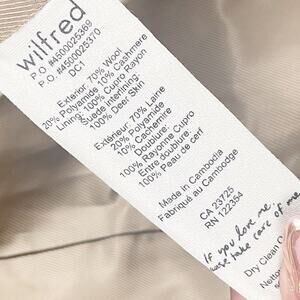 wilfred
P.O. #4500025369
P.O. #4500025370
DC1
Exterior: 70% Wool
20% Polyamide 10% Cashmere
Lining: 100% Cupro Rayon
Suede interlining:
100% Deer Skin
Extérieur: 70% Laine
20% Polyamide
10% Cachemire
Doublure:
100% Rayonne Cupro
Entre doublure:
100% Peau de cerf
Made in Cambodia
Fabriqué au Cambodge
CA 23725
RN 122354
If you love me,
please take care of me
Dry Clean